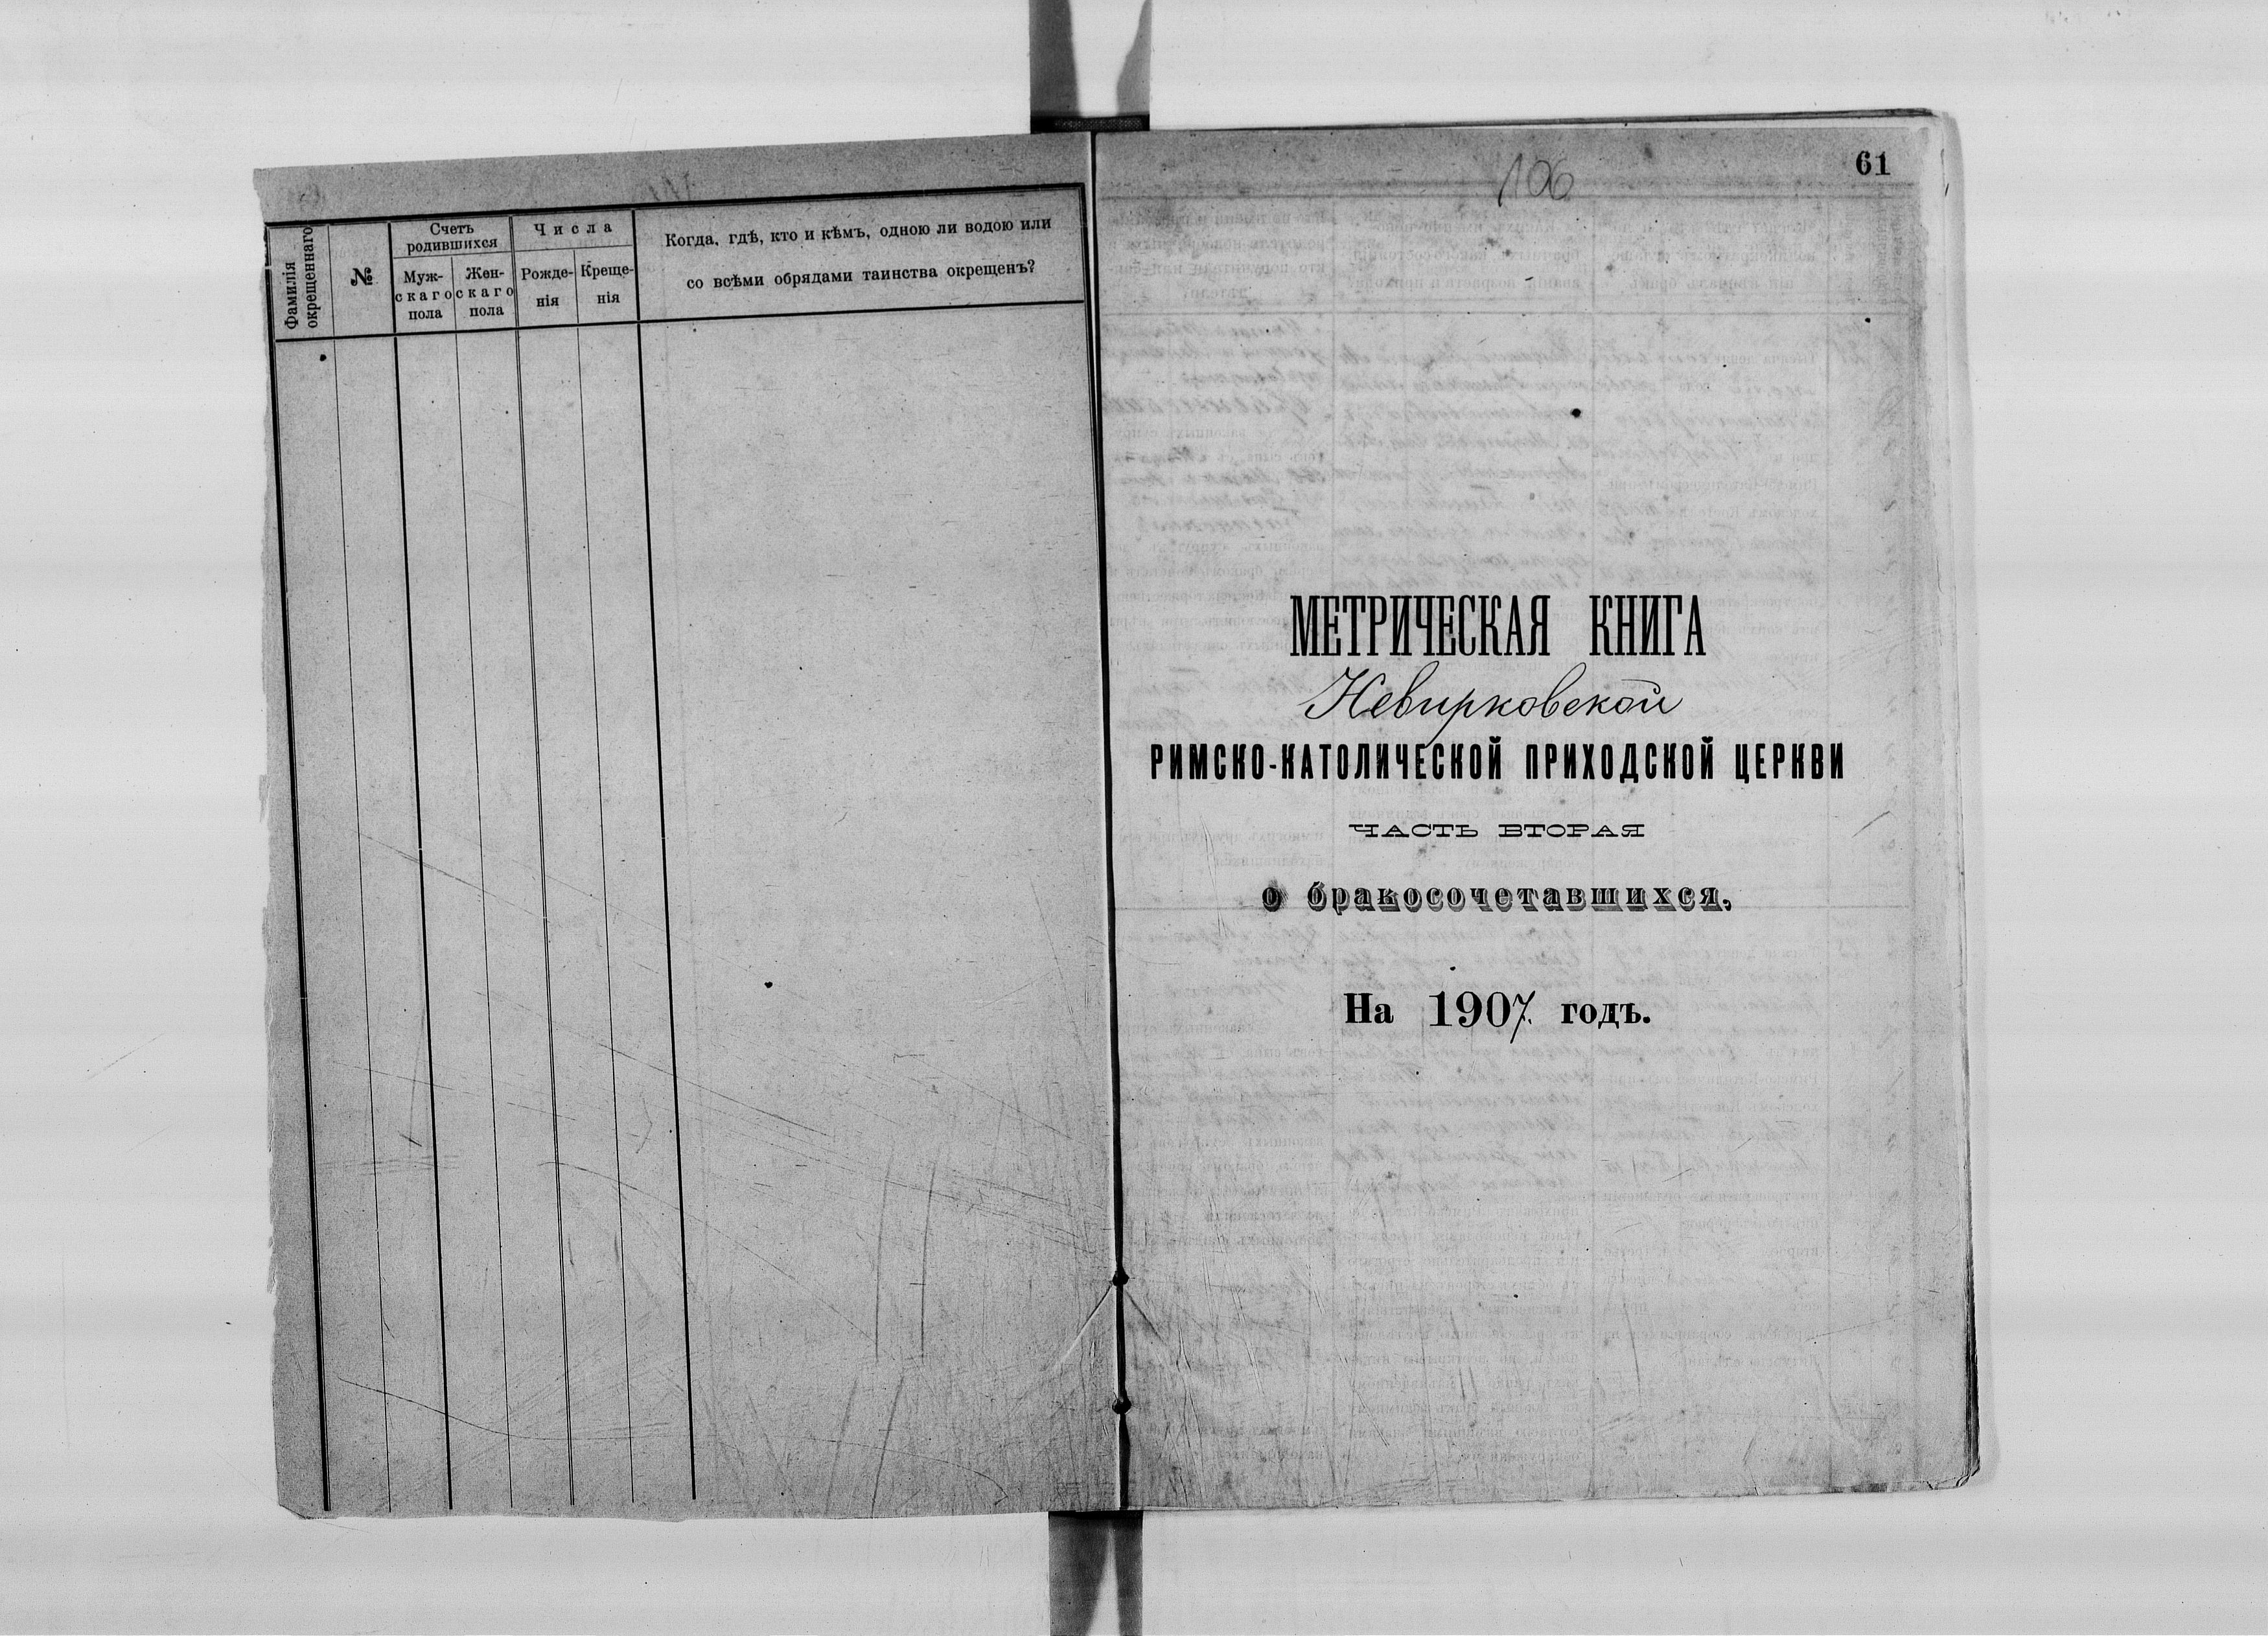 Фамилія
окрещеннаго
№
Счетъ
родившихся
Муж-
скаго
пола
Жен-
скаго
пола
Числа
Рожде-
нія
Креще-
нія
Когда, гдѣ, кто и кѣмъ, одною ли водою или
со всѣми обрядами таинства окрещенъ?
106
61
МЕТРИЧЕСКАЯ КНИГА
Невирковской
РИМСКО-КАТОЛИЧЕСКОЙ ПРИХОДСКОЙ ЦЕРКВИ
ЧАСТЬ ВТОРАЯ
о бракосочетавшихся,
На 1907 годъ.